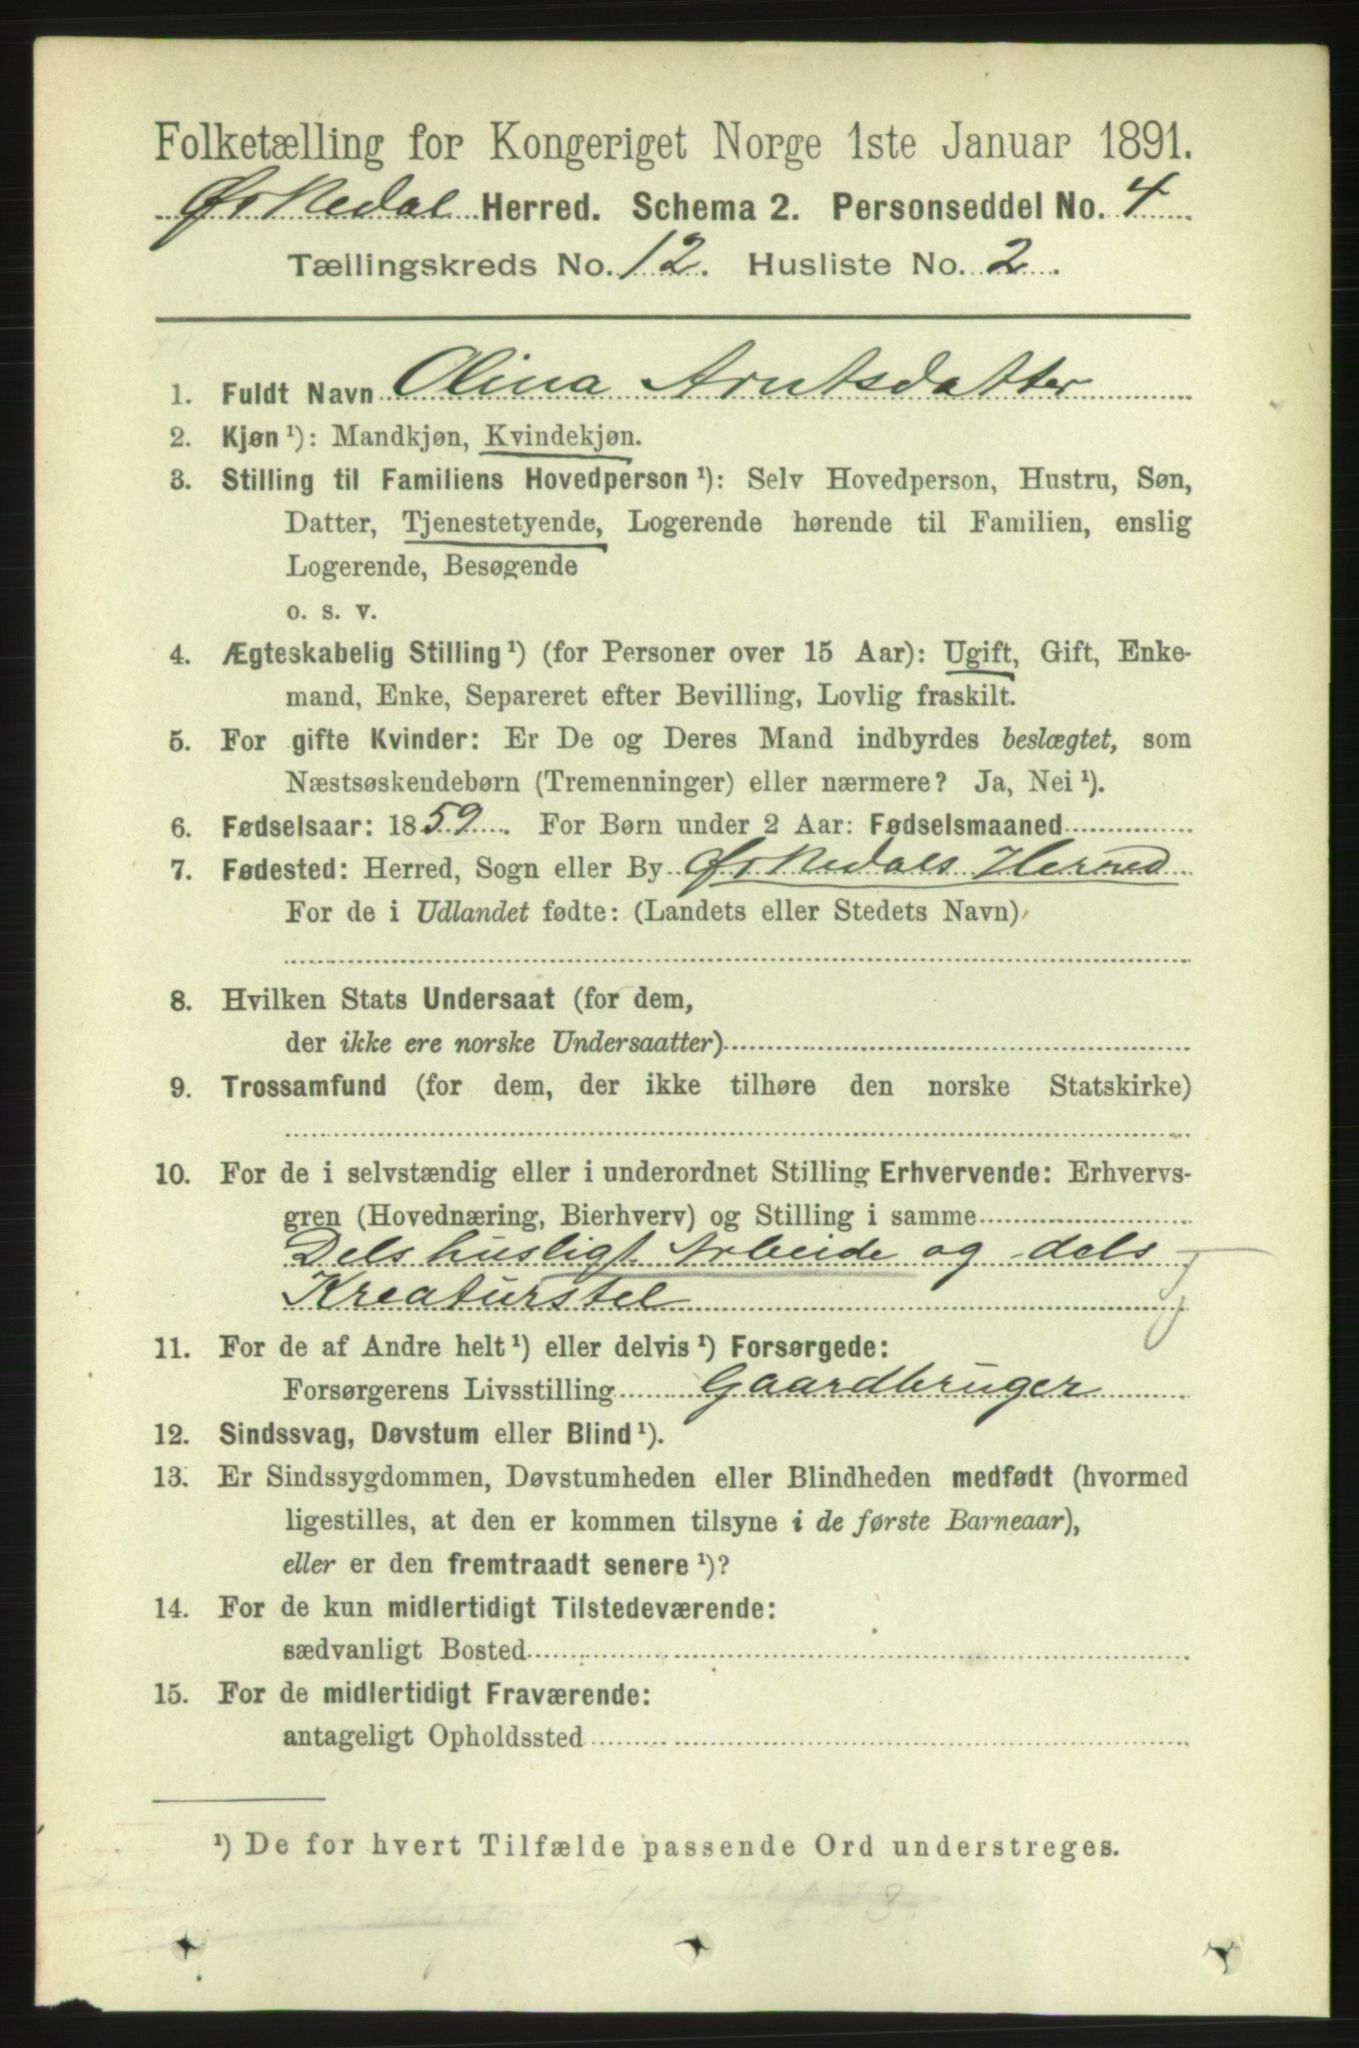 Folketælling for Kongeriget Norge 1ste Januar 1891.
Ørkedal Herred. Schema 2. Personseddel No. 4
Tællingskreds No. 12. Husliste No. 2.
1. Fuldt Navn Olina Arntsdatter
2. Kjøn ¹): Mandkjøn, Kvindekjøn.
3. Stilling til Familiens Hovedperson ¹): Selv Hovedperson, Hustru, Søn,
Datter, Tjenestetyende, Logerende hørende til Familien, enslig
Logerende, Besøgende
o. s. v.
4. Ægteskabelig Stilling ¹) (for Personer over 15 Aar): Ugift, Gift, Enke-
mand, Enke, Separeret efter Bevilling, Lovlig fraskilt.
5. For gifte Kvinder: Er De og Deres Mand indbyrdes beslægtet, som
Næstsøskendebørn (Tremenninger) eller nærmere? Ja, Nei ¹).
6. Fødselsaar: 1859. For Børn under 2 Aar: Fødselsmaaned
7. Fødested: Herred, Sogn eller By Ørkedals Herred
For de i Udlandet fødte: (Landets eller Stedets Navn)
8. Hvilken Stats Undersaat (for dem,
der ikke ere norske Undersaatter)
9. Trossamfund (for dem, der ikke tilhøre den norske Statskirke)
10. For de i selvstændig eller i underordnet Stilling Erhvervende: Erhvervs-
gren (Hovednæring, Bierhverv) og Stilling i samme
Dels husligt Arbeide og dels
Kreaturstel
11. For de af Andre helt ¹) eller delvis ¹) Forsørgede:
Forsørgerens Livsstilling Gaardbruger
12. Sindssvag, Døvstum eller Blind ¹).
13. Er Sindssygdommen, Døvstumheden eller Blindheden medfødt (hvormed
ligestilles, at den er kommen tilsyne i de første Barneaar),
eller er den fremtraadt senere ¹)?
14. For de kun midlertidigt Tilstedeværende:
sædvanligt Bosted
15. For de midlertidigt Fraværende:
antageligt Opholdssted
¹) De for hvert Tilfælde passende Ord understreges.